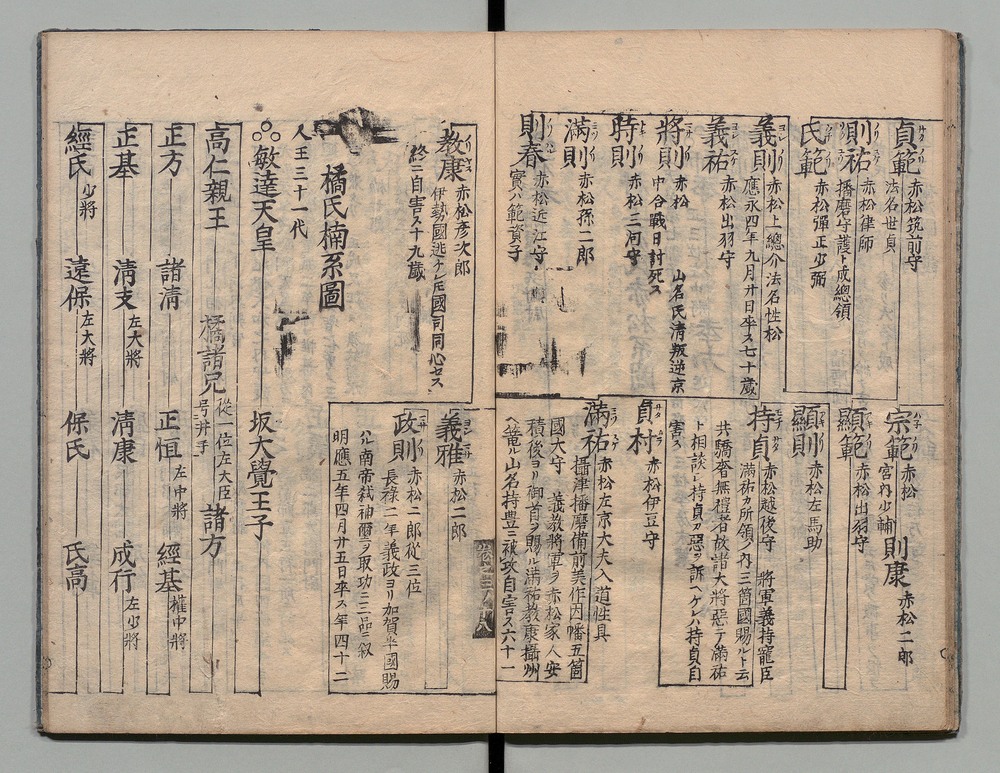 貞範 赤松筑前守
法名世貞
則祐 赤松律師
播磨守護ト成總領
氏範 赤松彈正少弼
義則 赤松上總介法名性松
應永四年九月廿日卒ス七十歲
義祐 赤松出羽守
將則 赤松
山名氏清叛逆京
中合戰日討死ス
時則 赤松三河守
滿則 赤松孫二郎
則春 赤松近江守
實ハ範資子
宗範 赤松
宮内少輔
則康 赤松二郎
顯範 赤松出羽守
顯則 赤松左馬助
持貞 赤松越後守 將軍義持寵臣
滿祐カ所領ノ内三箇國賜ルト云
共驕奢無禮者故諸大將惡テ滿祐
ト相談シ持貞カ惡ヲ訴ヘケレハ持貞自
害ス
貞村 赤松伊豆守
滿祐 赤松左京大夫入道性具
攝津播磨備前美作因幡五箇
國大守 義教將軍ヲ赤松家人安
積後ヨリ御首ヲ賜ル滿祐教康攝州
ヘ篭ル山名持豊ニ被攻自害ス六十一
教康 赤松彦次郎
伊勢國逃ケレ𪜈國司同心セス
終ニ自害ス十九歲
義雅 赤松二郎
政則 赤松二郎從三位
長祿二年義政ヨリ加賀半國賜
ハル南帝弒神璽ヲ取功ニ三品ニ叙
明應五年四月廿五日卒ス年四十二
橘氏楠系圖
人王三十一代
敏達天皇
坂大覺王子
高仁親王
橘諸兄 從一位左大臣
号井手
諸方
正方
諸清
正恒 左中將
經基 權中將
正基
清支 左大將
清康
成行 左少將
經氏 少將
遠保 左大將
保氏
氏高